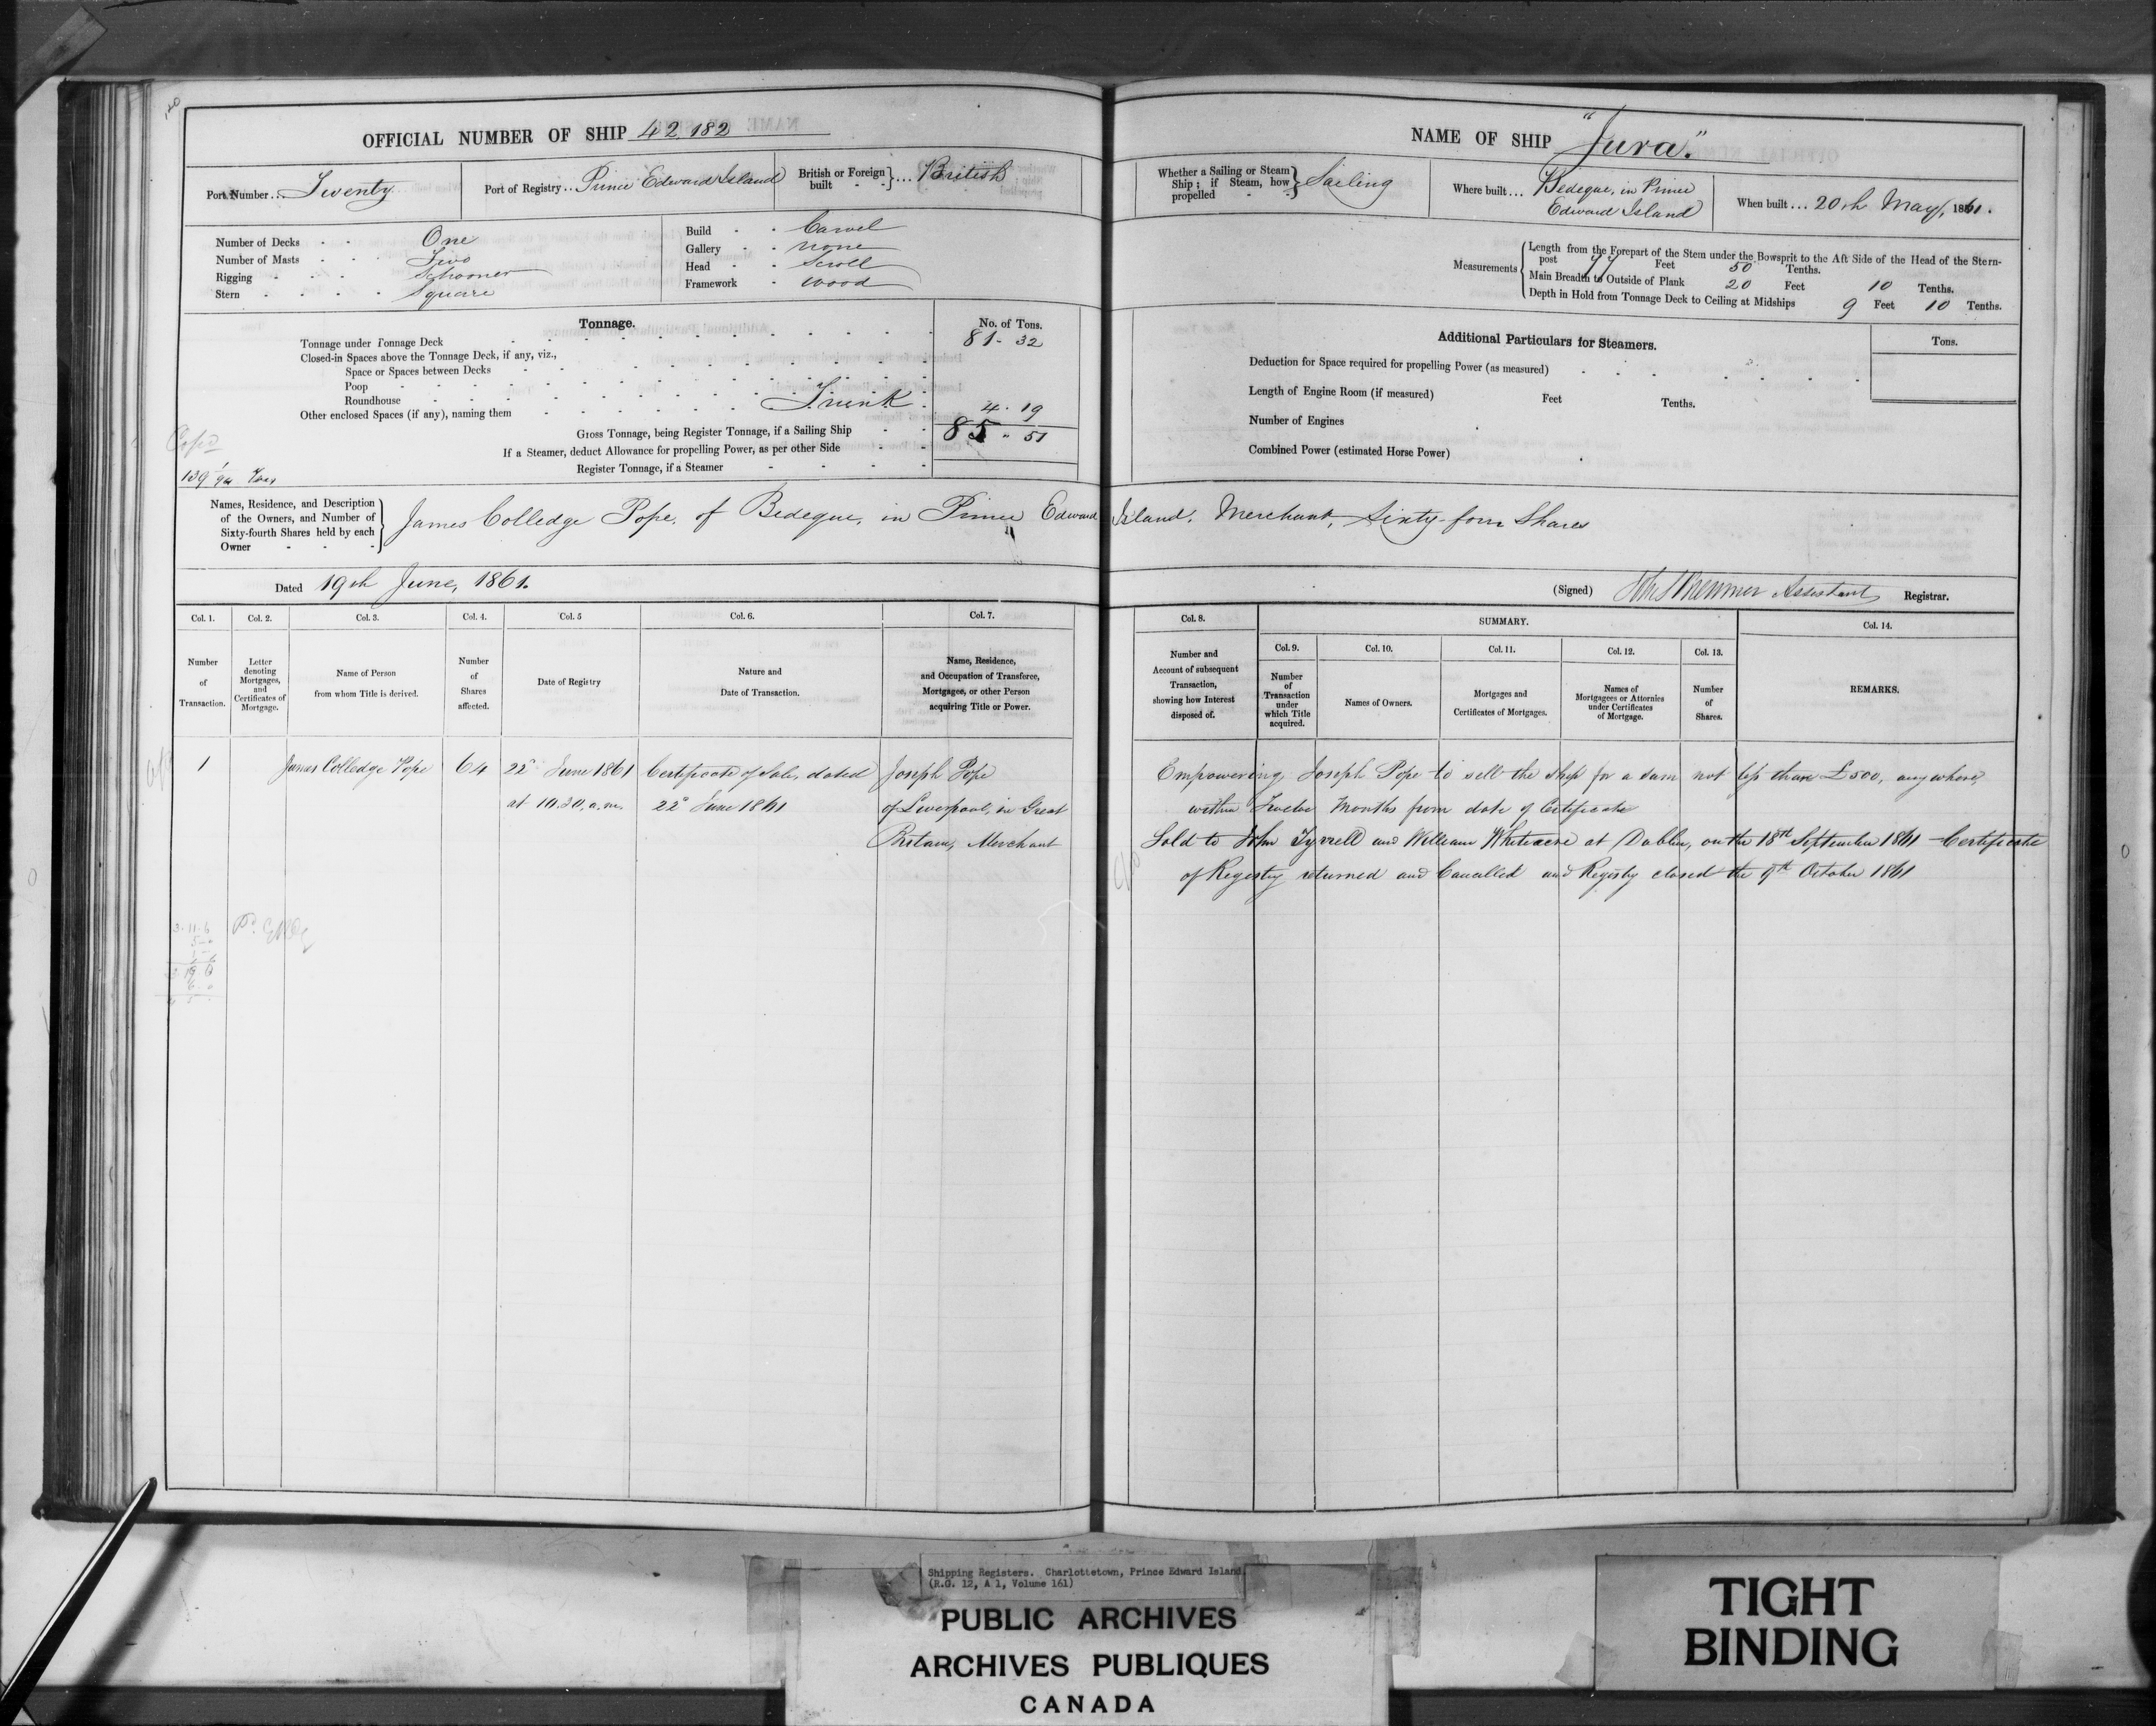 OFFICIAL NUMBER OF SHIP 42.182
Port Number... Twenty
Port of Registry... Prince Edward Island
British or Foreign built - - }... British
Number of Decks - - One
Number of Masts - - Two
Rigging - - - Schooner
Stern - - - - Square
Build - - Carvel
Gallery - - none
Head - - Scroll
Framework - wood
Tonnage.
No. of Tons.
Tonnage under Tonnage Deck 81. 32
Closed-in Spaces above the Tonnage Deck, if any, viz.,
Space or Spaces between Decks
Poop
Roundhouse
Other enclosed Spaces (if any), naming them Trunk 4. 19
Gross Tonnage, being Register Tonnage, if a Sailing Ship 85 .. 51
If a Steamer, deduct Allowance for propelling Power, as per other Side
Register Tonnage, if a Steamer
Names, Residence, and Description
of the Owners, and Number of
Sixty-fourth Shares held by each
Owner
James Colledge Pope, of Bedeque, in Prince Edward Island, Merchant, Sixty-four Shares
Dated 19th June, 1861.
NAME OF SHIP "Jura".
Whether a Sailing or Steam
Ship; if Steam, how
propelled
Sailing
Where built... Bedeque, in Prince
Edward Island
When built... 20th May, 1861.
Measurements
Length from the Forepart of the Stem under the Bowsprit to the Aft Side of the Head of the Stern-
post 77 Feet 50 Tenths.
Main Breadth to Outside of Plank 20 Feet 10 Tenths.
Depth in Hold from Tonnage Deck to Ceiling at Midships 9 Feet 10 Tenths.
Additional Particulars for Steamers.
Tons.
Deduction for Space required for propelling Power (as measured)
Length of Engine Room (if measured) Feet Tenths.
Number of Engines
Combined Power (estimated Horse Power)
(Signed) Assistant Registrar.
Col. 1.
Number
of
Transaction.
Col. 2.
Letter
denoting
Mortgages,
and
Certificates of
Mortgage.
Col. 3.
Name of Person
from whom Title is derived.
Col. 4.
Number
of
Shares
affected.
Col. 5
Date of Registry
Col. 6.
Nature and
Date of Transaction.
Col. 7.
Name, Residence,
and Occupation of Transferee,
Mortgagee, or other Person
acquiring Title or Power.
Col. 8.
Number and
Account of subsequent
Transaction,
showing how Interest
disposed of.
SUMMARY.
Col. 9.
Number
of
Transaction
under
which Title
acquired.
Col. 10.
Names of Owners.
Col. 11.
Mortgages and
Certificates of Mortgages.
Col. 12.
Names of
Mortgagees or Attornies
under Certificates
of Mortgage.
Col. 13.
Number
of
Shares.
Col. 14.
REMARKS.
1
James Colledge Pope
64
22d June 1861
at 10.30. a.m.
Certificate of Sale, dated
22d June 1861
Joseph Pope
of Liverpool, in Great
Britain, Merchant
Empowering Joseph Pope to sell the Ship for a sum not less than £500, any where,
within Twelve Months from date of Certificate
Sold to John Tyrrell and William Whiteacre at Dublin, on the 18th September 1861 - Certificate
of Registry returned and Cancelled and Registry closed the 9th October 1861
Shipping Registers. Charlottetown, Prince Edward Island
(R.G. 12, A 1, Volume 161)
PUBLIC ARCHIVES
ARCHIVES PUBLIQUES
CANADA
TIGHT
BINDING